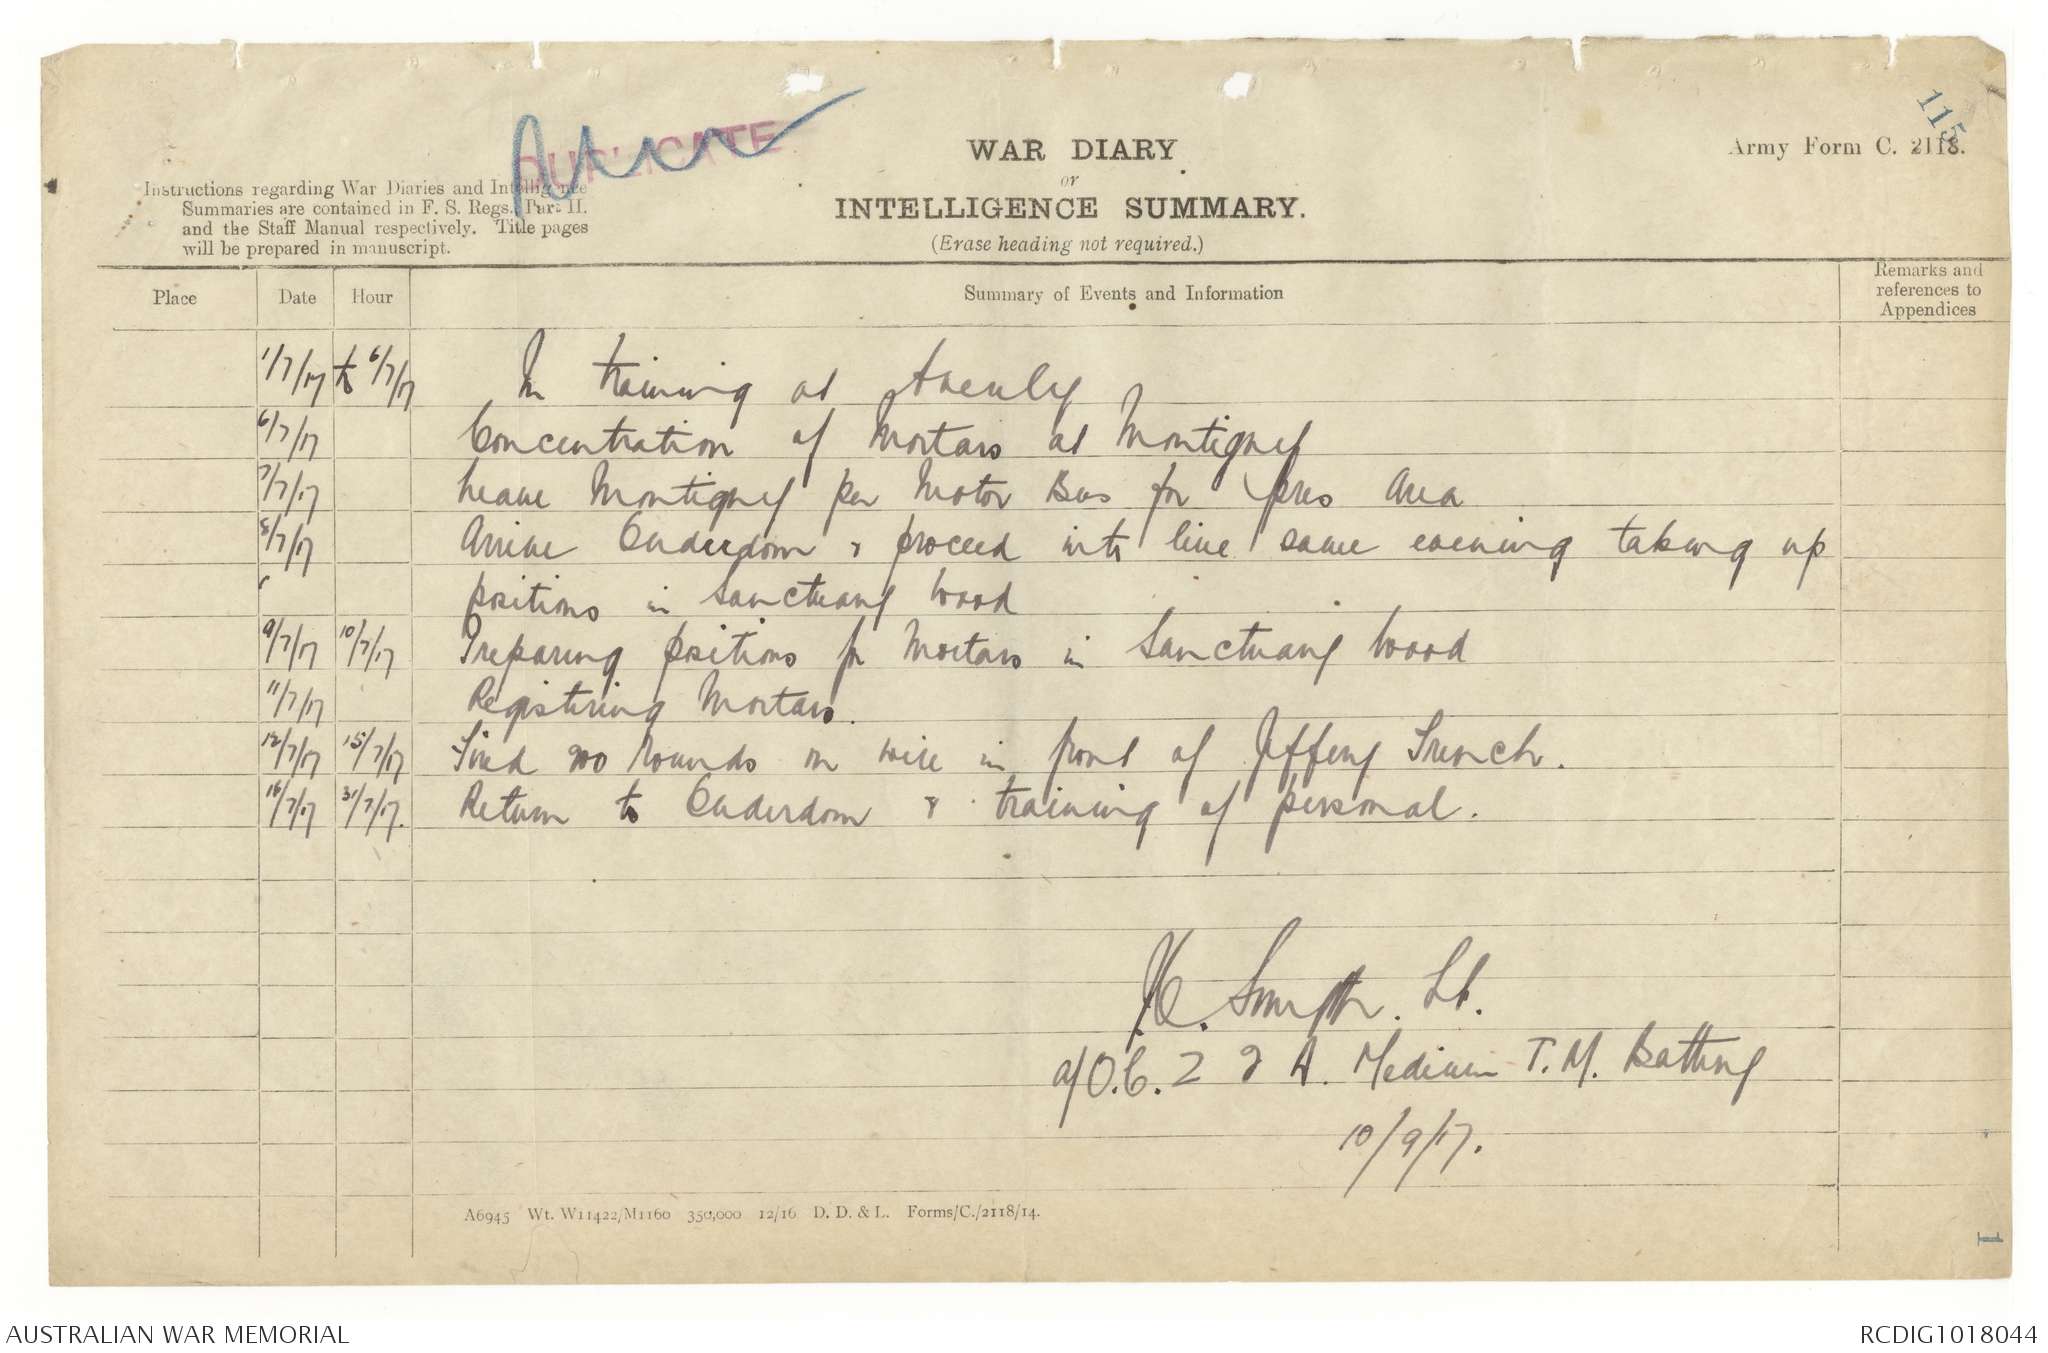 115
DUPLICATE
Army Form C. 2118.
WAR DIARY
or
INTELLIGENCE SUMMARY.
(Erase heading not required.)
Instructions regarding War Diaries and Intelligence
Summaries are contained in F. S. Regs., Part II.
and the Staff Manual respectively. Title pages
will be prepared in manuscript.
Place Date Hour Summary of Events and Information Remarks and references to Appendices
1/7/17 to 6/7/17 In training at
6/7/17 Concentration of Mortars at Montigny
7/7/17 Leave Montigny per Motor Bus for Ypres Area
8/7/17 Arrive Ouderdom & proceed into line same evening taking up
positions in Sanctuary Wood
9/7/17 10/7/17 Preparing positions for Mortars in Sanctuary Wood
11/7/17 Registering Mortars.
12/7/17 15/7/17 Fired 200 rounds on wire in front of Jeffery Trench.
16/7/17 31/7/17. Return to Ouderdom & training of personal.
Smyth. Lt.
a/O.C. Z 2 A. Medium T.M. Battery
10/9/17.
A6945 Wt. W11422/M1160 350,000 12/16 D. D. & L. Forms/C./2118/14.
1
AUSTRALIAN WAR MEMORIAL
RCDIG1018044